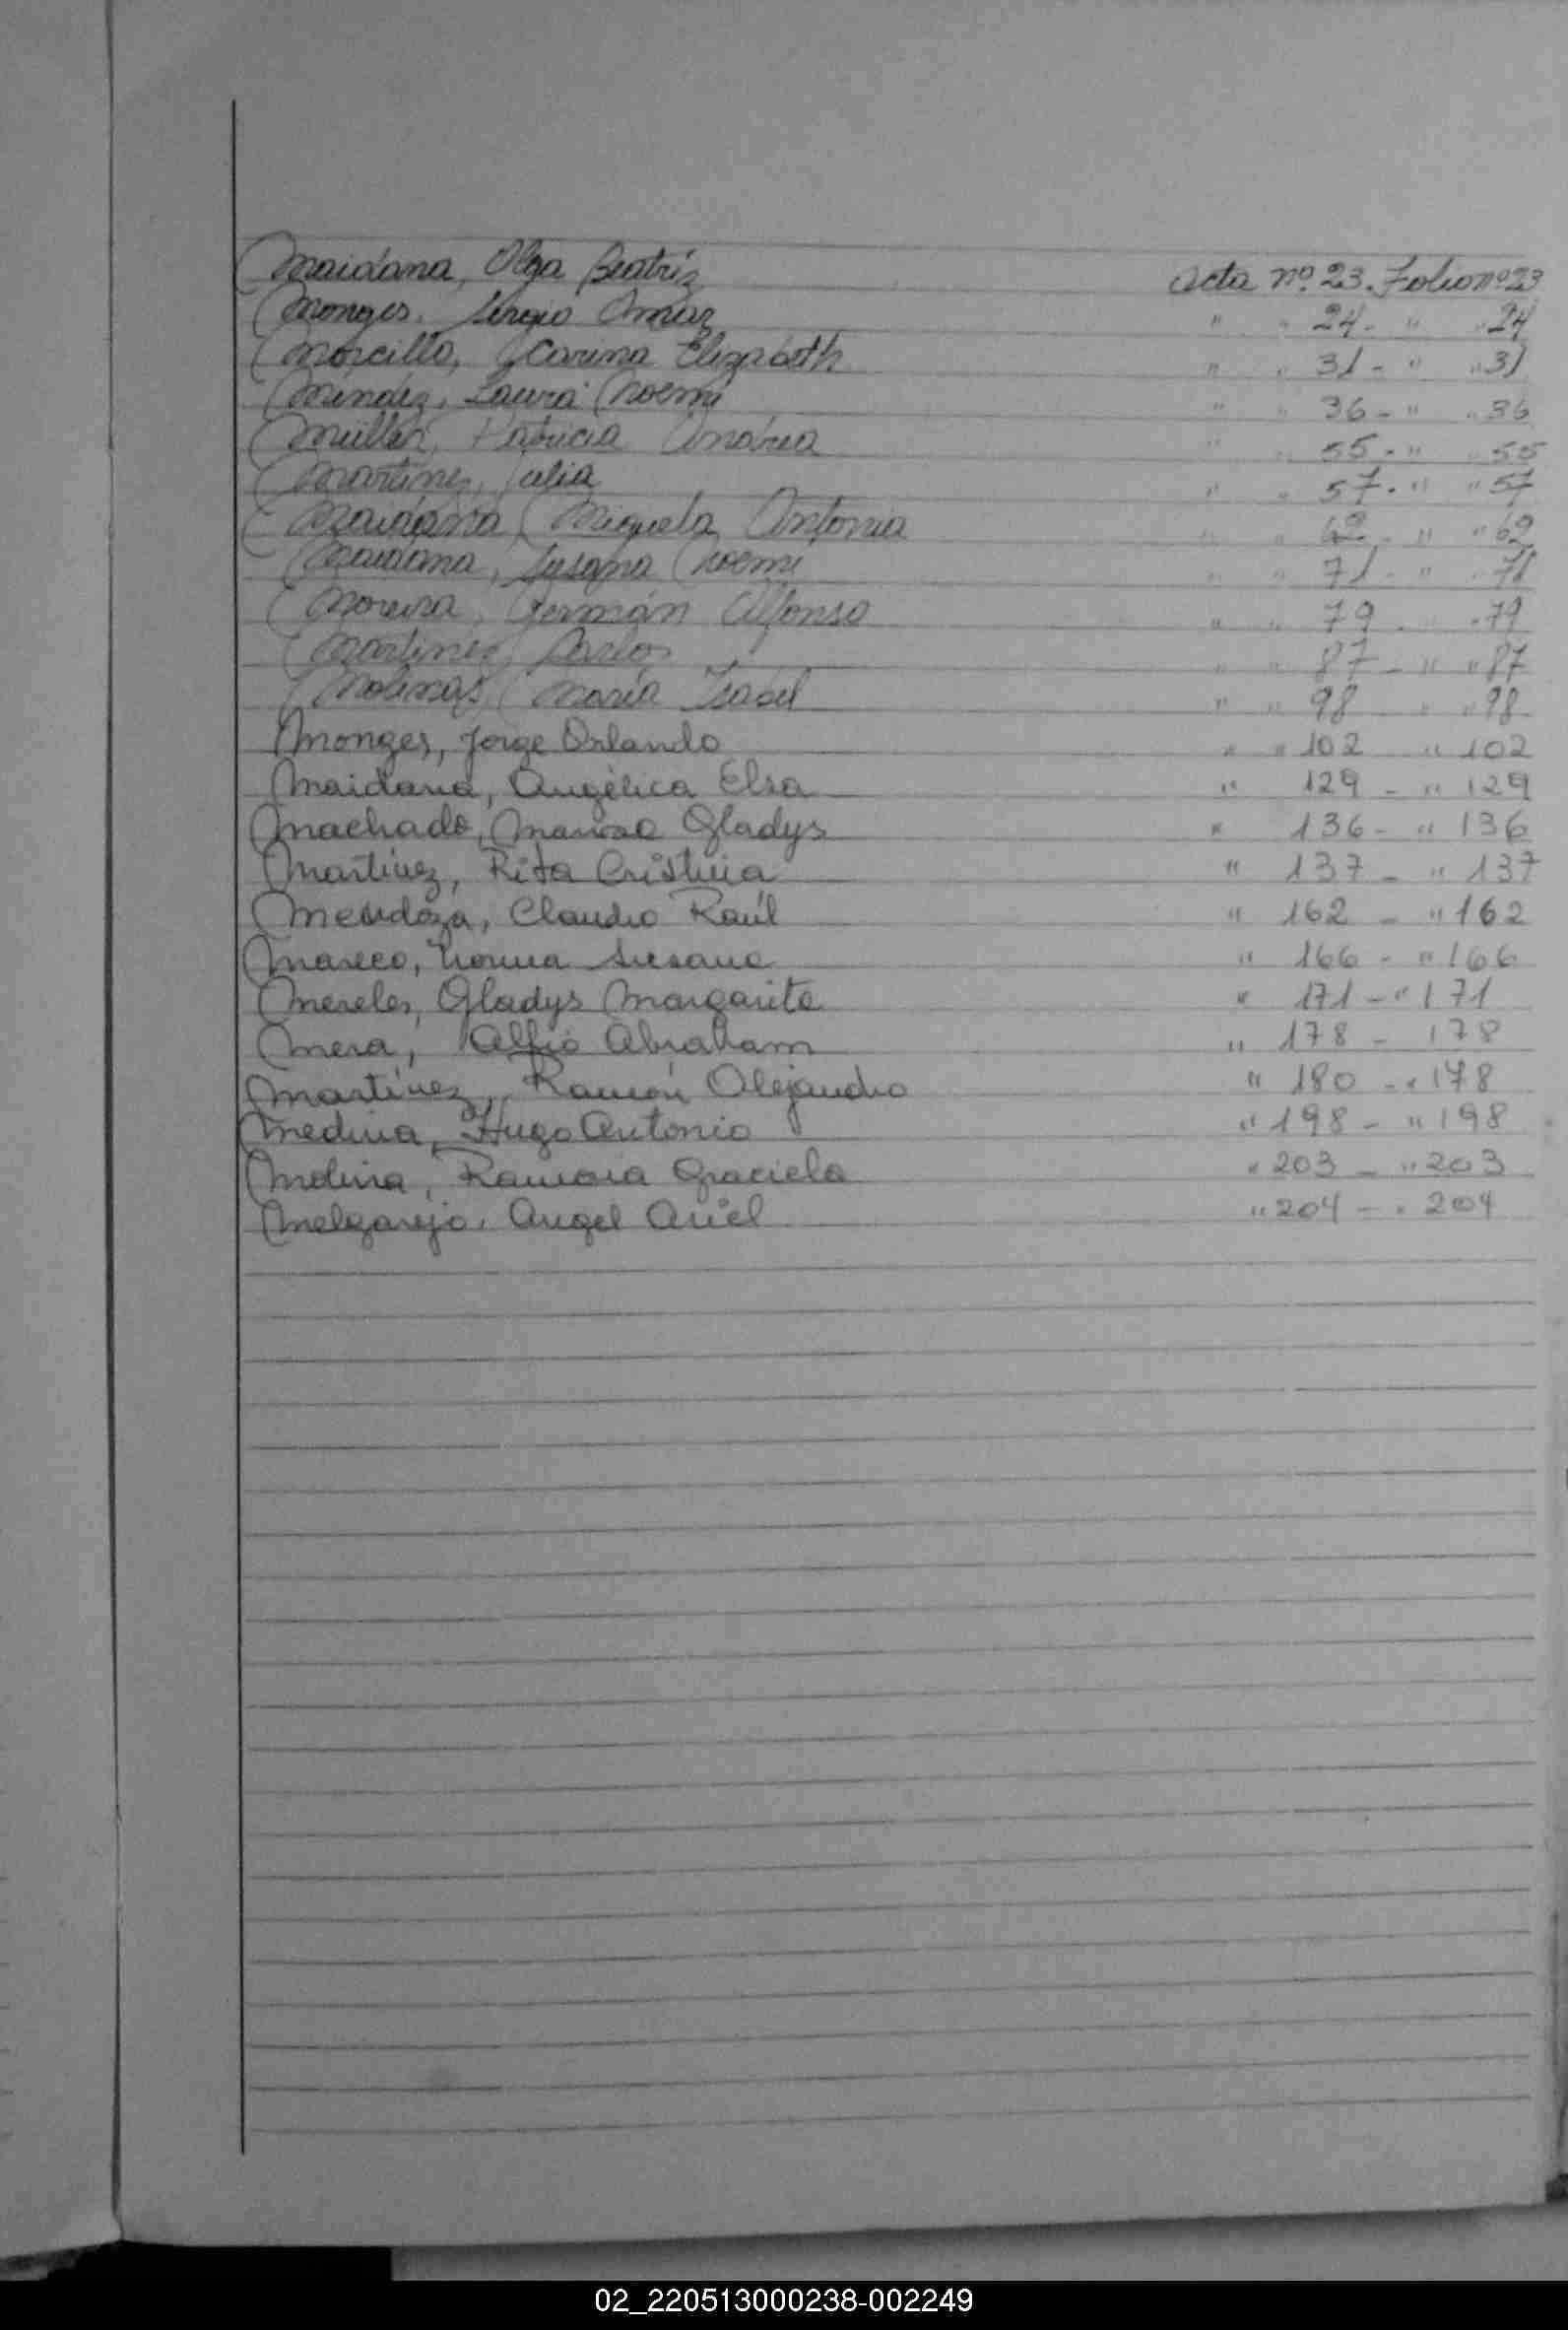 Maidana, Olga Beatriz Acta nº 23. Folio nº 23
Monges, Sergio Omar " " 24- " " 24
Morcillo, Carina Elizabeth " " 31- " " 31
Méndez, Laura Noemí " " 36- " " 36
Müller, Patricia Andrea " " 55- " " 55
Martínez, Julia " " 57- " " 57
Maidana, Miguela Antonia " " 62- " " 62
Maidana, Susana Noemí " " 71- " " 71
Moreira, Germán Alfonso " " 79- " 79
Martínez, Carlos " " 87- " " 87
Molinas, María Isabel " " 98 " " 98
Monges, Jorge Orlando " " 102 " 102
Maidana, Angélica Elsa " 129- " 129
Machado, Gladys " 136- " 136
Martínez, Rita Cristina " 137- " 137
Mendoza, Claudio Raúl " 162- " 162
Mareco, Norma Susana " 166- " 166
Mereles, Gladys Margarita " 171- " 171
Mera, Alfio Abraham " 178- 178
Martínez, Ramón Alejandro " 180- " 178
Medina, Hugo Antonio " 198- " 198
Molina, Ramona Graciela " 203- " 203
Melgarejo, Angel Ariel " 204- " 204
02_220513000238-002249